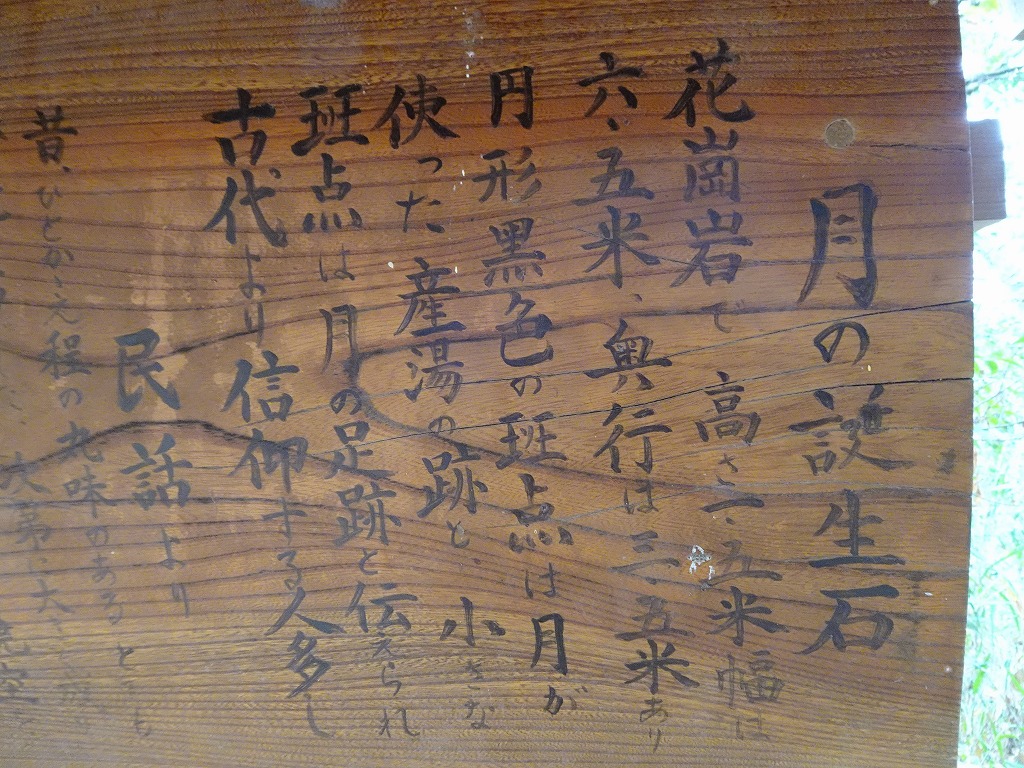 月の誕生石
花崗岩で高さ一、五米幅は
六、五米、奥行は三、五米あり
円形黒色の班点は月が
使った産湯の跡と、小さな
班点は月の足跡と伝えられ
古代より信仰する人多し
民話より
昔、ひとかゝえ程の丸味のある
次第に大